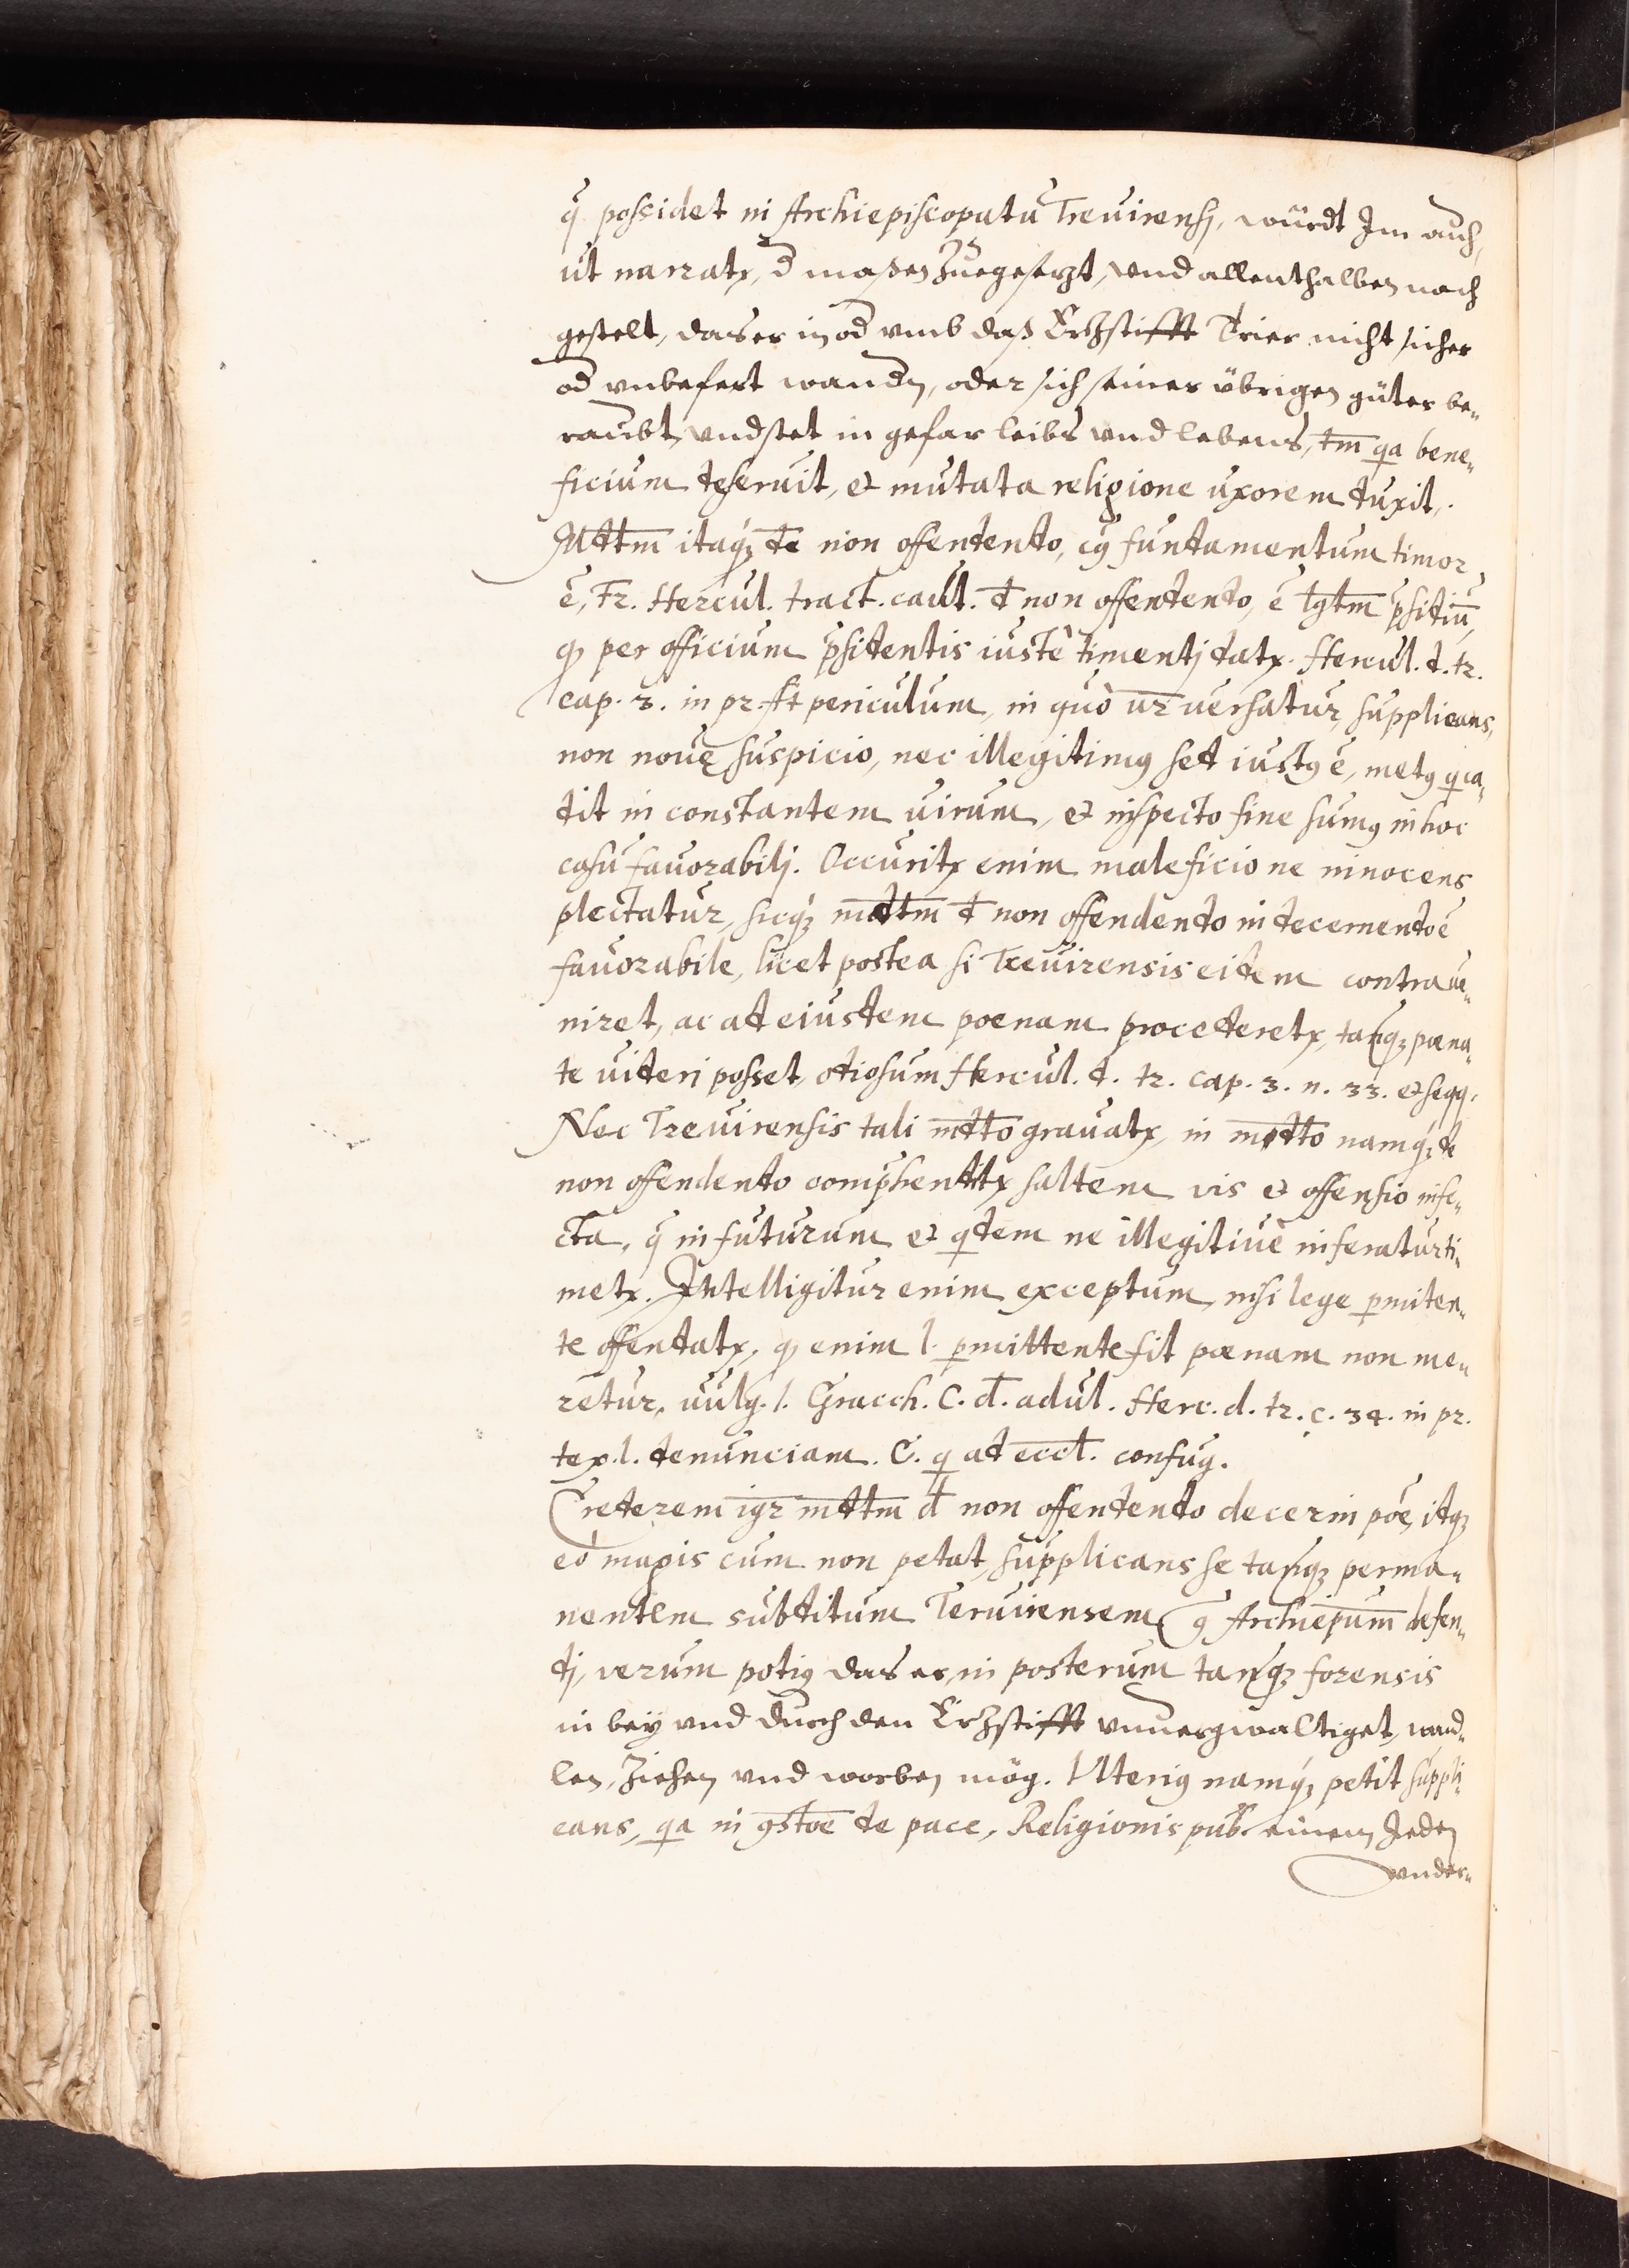 q̄ possidet in Archiepiscopatu Treuirensj, würdt Im auch,
ut narratr, d̄ maßen Zuegesetzt, vnd allenthalben nach
gestelt, das er in od vmb daß Ertzstifft Trier nicht sicher
od vnbefert wandn, oder sich seiner übrigen güter be„
raubt, vnd stet in gefar leibs vnd lebens, tm̄ qa bene„
ficium deseruit, et mutata religione uxorem duxit,.
Mdtm̄ itaq; de non offendendo, cuius fundamentum timor
ē, Fr. Hercul. tract. caut. d non offendendo, ē lgtm̄ p̄sidiū,
qd per officium p̄sidentis iustè timentj datr. Hercul. d. tr.
cap. 3. in pr. At periculum, in quò ur uersatur, supplicans,
non nouę suspicio, nec illegitimus sed iustus ē, metus q ca„
dit in constantem uirum, et inspecto fine sumus in hoc
casu fauorabilj. Occuritr enim maleficio ne innocens
plectatur, sicq; mdtm̄ d non offendendo in decernendo ē
fauorabile, licet postea si Treuirensis eidem contraue„
niret, ac ad eiusdem poenam procederetr, tanq; poena„
le uideri posset, odiosum Hercul. d. tr. cap. 3. n. 33. et seqq.
Nec Treuirensis tali mdto grauatr, in mdto namq; de
non offendendo comp̄henditr saltem vis et offensio infe„
cta, q̄ in futurum et qdem ne illegitimè inferatur ti„
metr. Intelligitur enim exceptum, nisi lege pmitten„
te offendatr, qd enim l. pmittente fit poenam non me„
retur, uulg. l. Gracch. C. d. adul. Herc. d. tr. c. 34. in pr.
tex. l. denunciam. C. q ad eccl. confug.
Crederem igr mdtm̄ d non offendendo decerni poe, idq;
eò magis cum non petat, supplicans se tanq; perma„
nentem subditum Teruirensem contra Archiepum̄ defen„
dj, verum potius das er, in posterum tanq; forensis
in bey vnd durch den Ertzstifft vnuergwaltiget, wand„
len, Ziehen vnd werben mög. Vlterius namq; petit suppli„
cans, qa in constoe de pace, Religionis pub. einem Jeden
vnder„